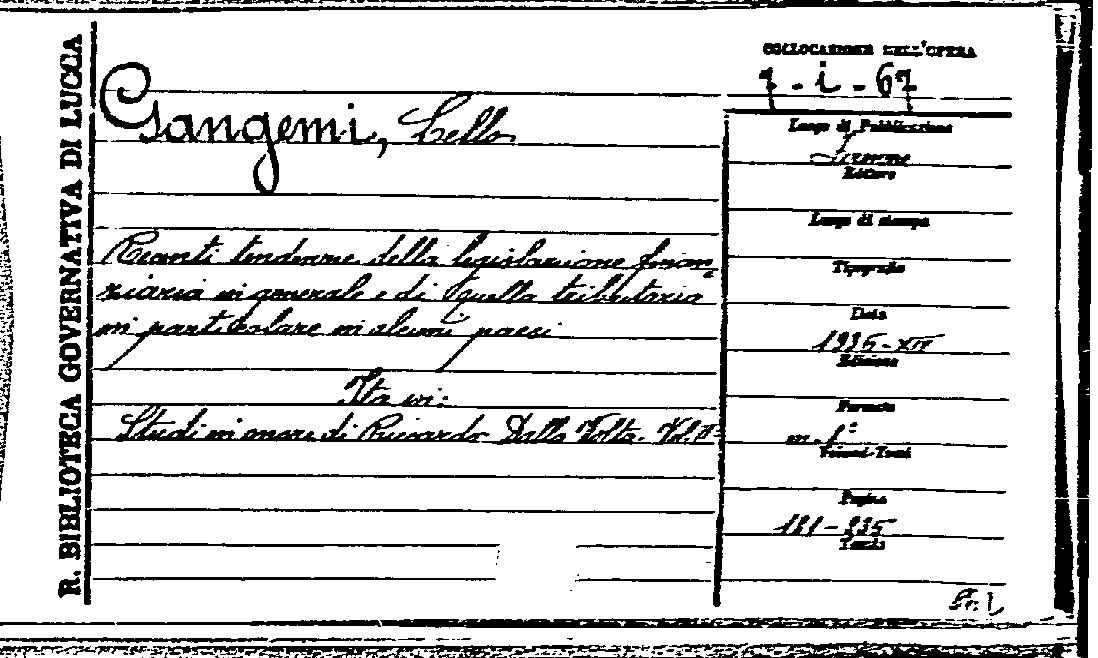 R. BIBLIOTECA GOVERNATIVA DI LUCCA
Gangemi, Lello
Recenti tendenze della legislazione finan-
ziaria in generale e di quella tributaria
in particolare in alcuni paesi
Sta in:
Studi in onore di Riccardo Dalla Volta. Vol. II°
COLLOCAZIONE DELL'OPERA
7 - i - 67
Luogo di Pubblicazione
Firenze
Editore
Luogo di stampa
Tipografia
Data
Edizione
Formato
m. 8°
Volumi-Tomi
Pagine
Tavole